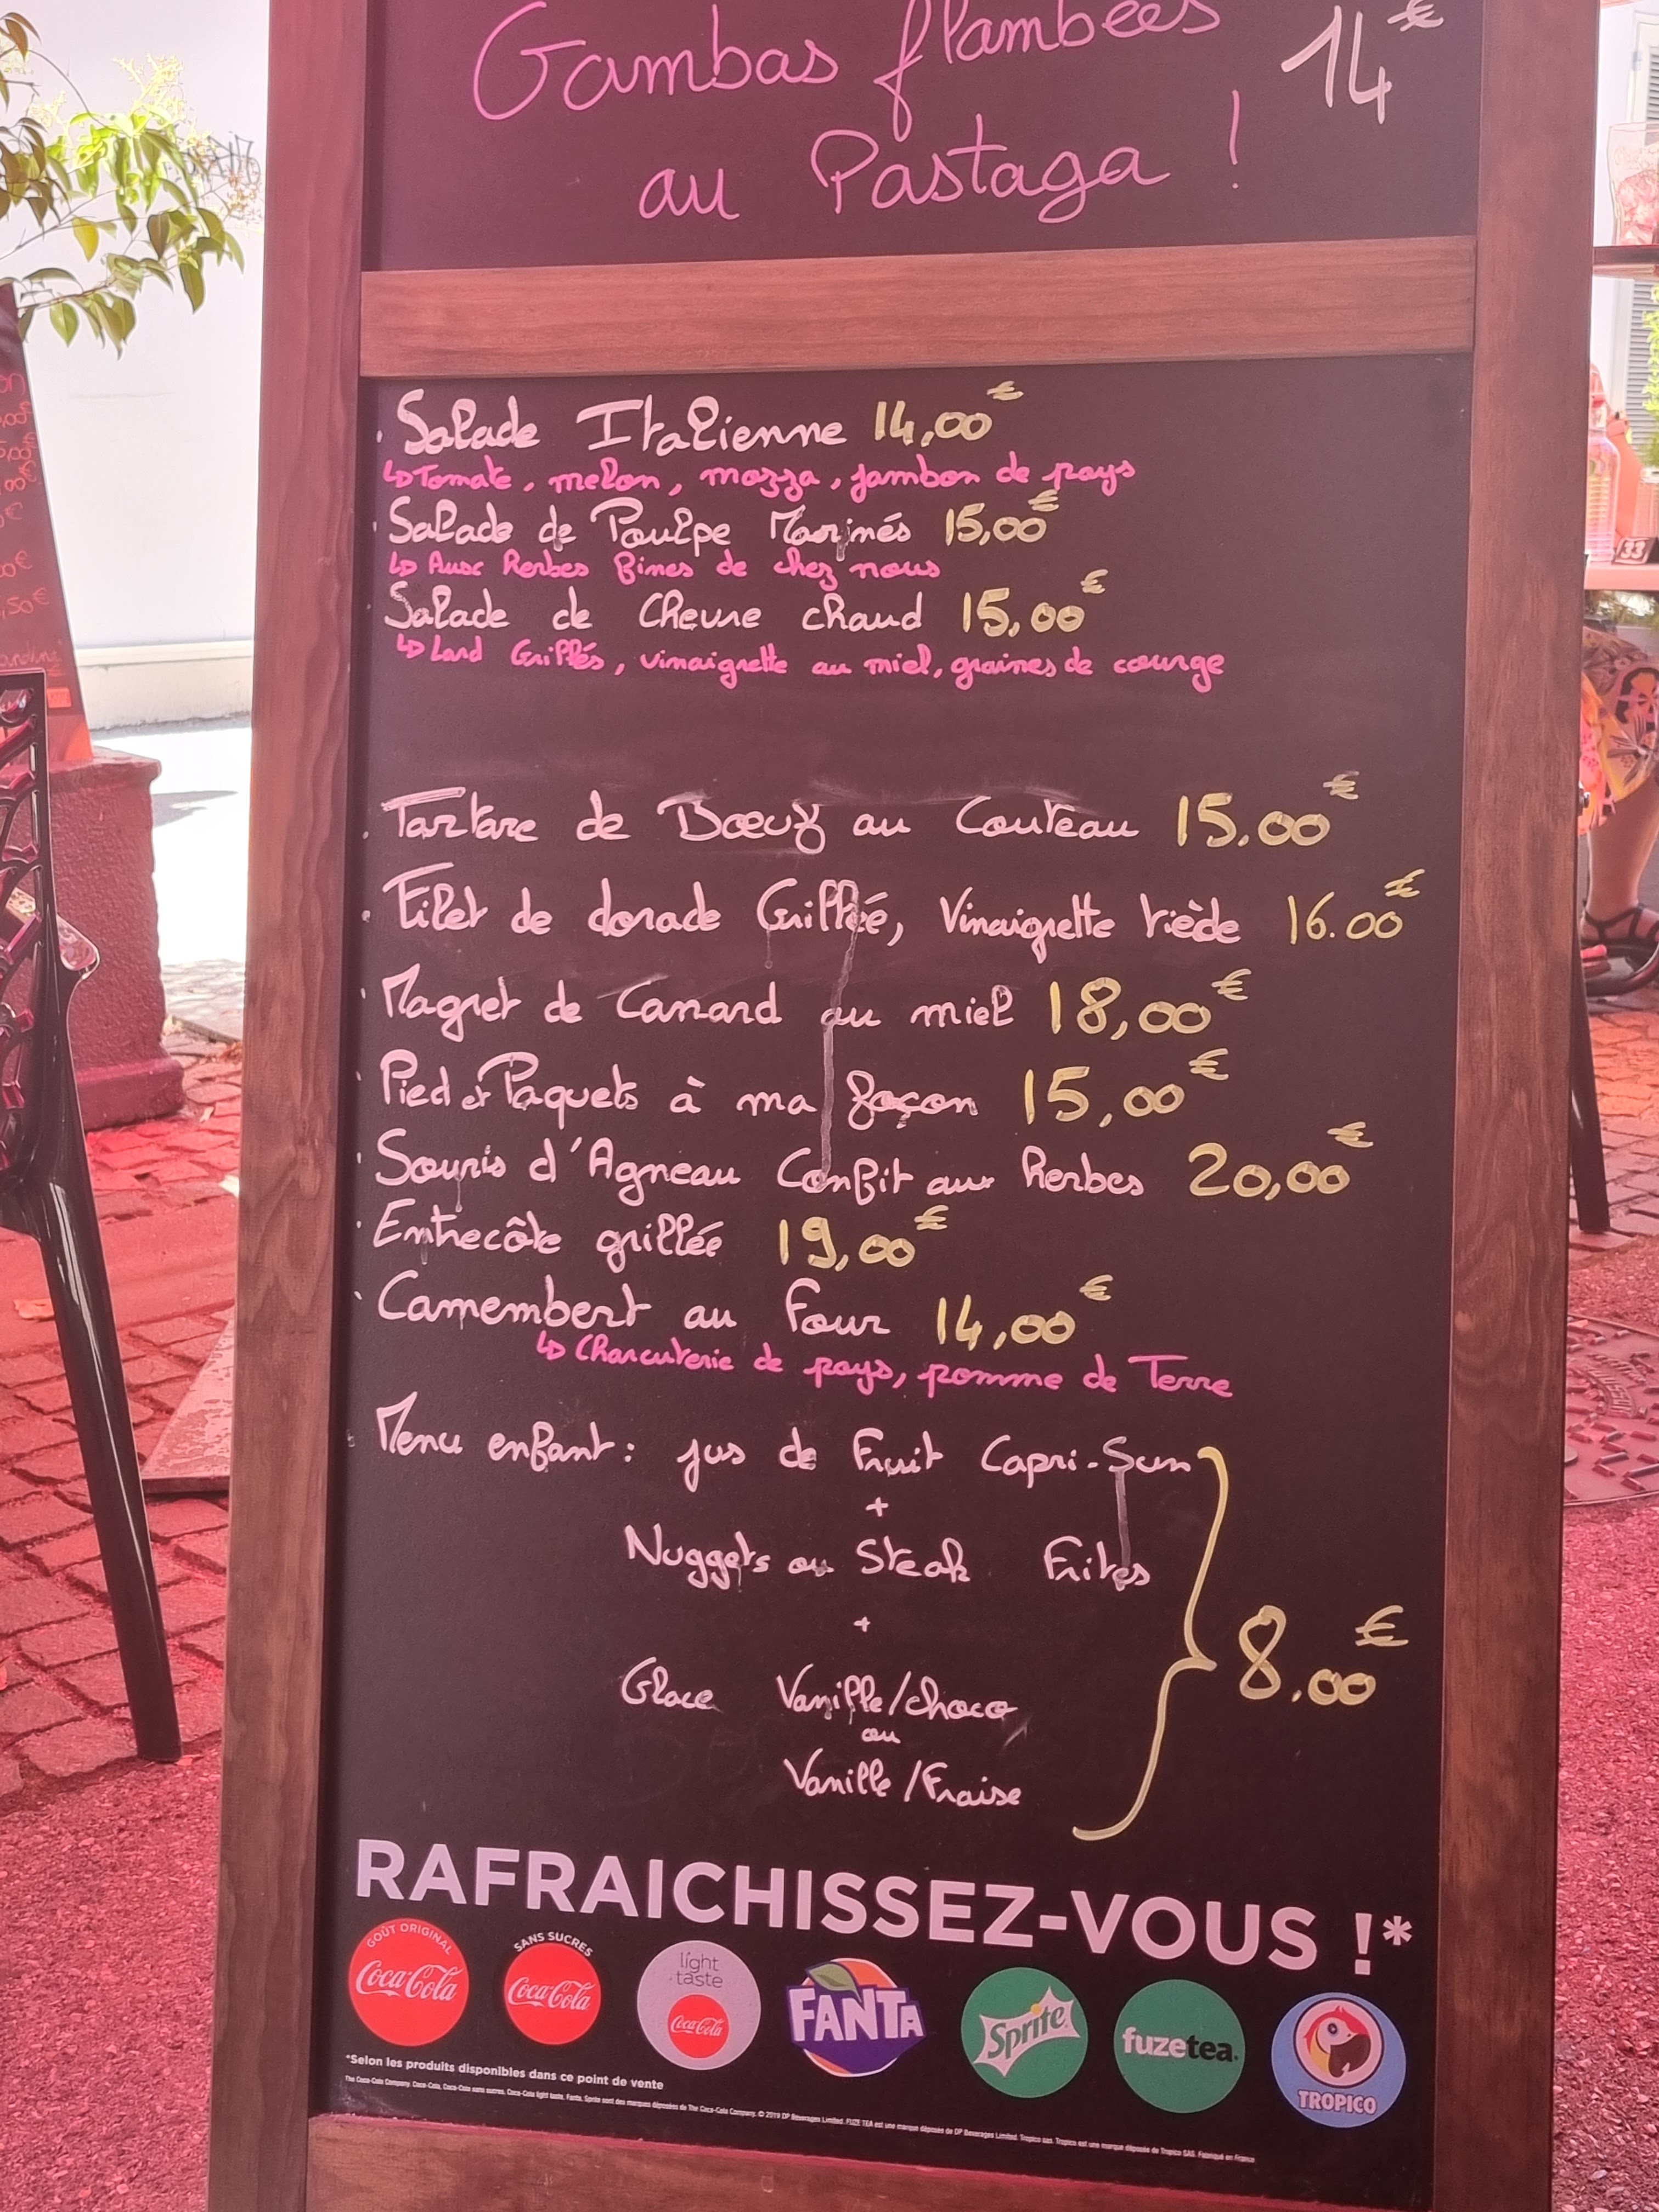 Gambas flambées 14€
au Pastaga !
. Salade Italienne 14,00€
↳ Tomate, melon, mozza, jambon de pays
. Salade de Poulpe Marinés 15,00€
↳ Aux Herbes fines de chez nous
. Salade de Chevre chaud 15,00€
↳ Lard Grillés, vinaigrette au miel, graines de courge
. Tartare de Bœuf au Couteau 15.00€
. Filet de dorade Grillée, Vinaigrette tiède 16.00€
. Magret de Canard au miel 18,00€
. Pied et Paquets à ma façon 15,00€
. Souris d'Agneau Confit aux Herbes 20,00€
. Entrecôte grillée 19,00€
. Camembert au Four 14,00€
↳ Charcuterie de pays, pomme de Terre
. Menu enfant : jus de Fruit Capri-Sun
+
Nuggets ou Steak Frites
+
8.00€
Glace Vanille/choco
ou
Vanille/Fraise
RAFRAICHISSEZ-VOUS !*
GOÛT ORIGINAL
Coca-Cola
SANS SUCRES
Coca-Cola
light taste
Coca-Cola
FANTA
Sprite
fuzetea
TROPICO
*Selon les produits disponibles dans ce point de vente
The Coca-Cola Company. Coca-Cola, Coca-Cola sans sucres, Coca-Cola light taste, Fanta, Sprite sont des marques déposées de The Coca-Cola Company. © 2019 DP Beverages Limited. FUZE TEA est une marque déposée de DP Beverages Limited. Tropico sas. Tropico est une marque déposée de Tropico SAS. Fabriqué en France
33